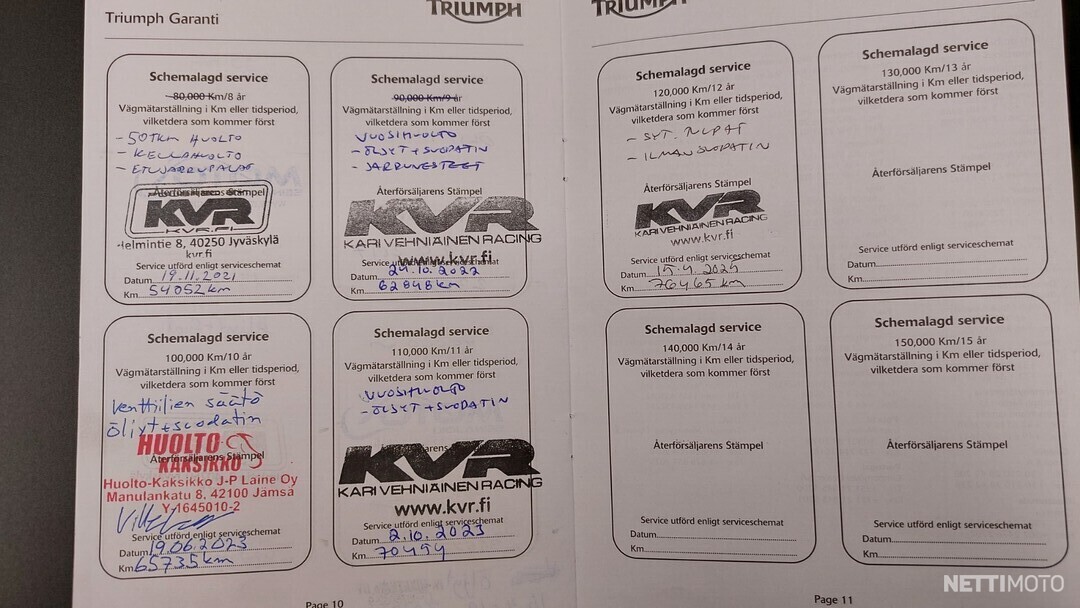 Triumph Garanti
TRIUMPH
Schemalagd service
80,000 Km/8 år
Vägmätarställning i Km eller tidsperiod,
vilketdera som kommer först
- 50TKM HUOLTO
- KELLAHUOLTO
- ETUJARRUPALAT
Återförsäljarens Stämpel
KVR
KVR.FI
Helmintie 8, 40250 Jyväskylä
kvr.fi
Service utförd enligt serviceschemat
Datum 19.11.2021
Km 54052 km
Schemalagd service
90,000 Km/9 år
Vägmätarställning i Km eller tidsperiod,
vilketdera som kommer först
VUOSIHUOLTO
- ÖLJYT + SUODATIN
- JARRUNESTEET
Återförsäljarens Stämpel
KVR
KARI VEHNIÄINEN RACING
www.kvr.fi
Service utförd enligt serviceschemat
Datum 24.10.2022
Km 62848 km
Schemalagd service
100,000 Km/10 år
Vägmätarställning i Km eller tidsperiod,
vilketdera som kommer först
Venttiilien säätö
öljyt+suodatin
HUOLTO
KAKSIKKO
Återförsäljarens Stämpel
Huolto-Kaksikko J-P Laine Oy
Manulankatu 8, 42100 Jämsä
Y-1645010-2
Service utförd enligt serviceschemat
Datum 19.06.2023
Km 65735 km
Schemalagd service
110,000 Km/11 år
Vägmätarställning i Km eller tidsperiod,
vilketdera som kommer först
VUOSIHUOLTO
- ÖLJYT + SUODATIN
Återförsäljarens Stämpel
KVR
KARI VEHNIÄINEN RACING
www.kvr.fi
Service utförd enligt serviceschemat
Datum 2.10.2023
Km 70494
Page 10
TRIUMPH
Schemalagd service
120,000 Km/12 år
Vägmätarställning i Km eller tidsperiod,
vilketdera som kommer först
- SYT. TULPAT
- ILMANSUODATIN
Återförsäljarens Stämpel
KVR
KARI VEHNIÄINEN RACING
www.kvr.fi
Service utförd enligt serviceschemat
Datum 15.4.2024
Km 76465 km
Schemalagd service
130,000 Km/13 år
Vägmätarställning i Km eller tidsperiod,
vilketdera som kommer först
Återförsäljarens Stämpel
Service utförd enligt serviceschemat
Datum
Km
Schemalagd service
140,000 Km/14 år
Vägmätarställning i Km eller tidsperiod,
vilketdera som kommer först
Återförsäljarens Stämpel
Service utförd enligt serviceschemat
Datum
Km
Schemalagd service
150,000 Km/15 år
Vägmätarställning i Km eller tidsperiod,
vilketdera som kommer först
Återförsäljarens Stämpel
Service utförd enligt serviceschemat
Datum
Km
Page 11
NETTIMOTO